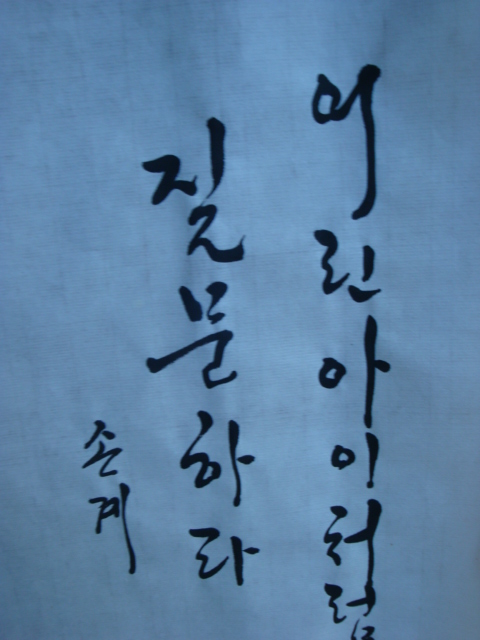 어린아이처럼
질문하라
손계